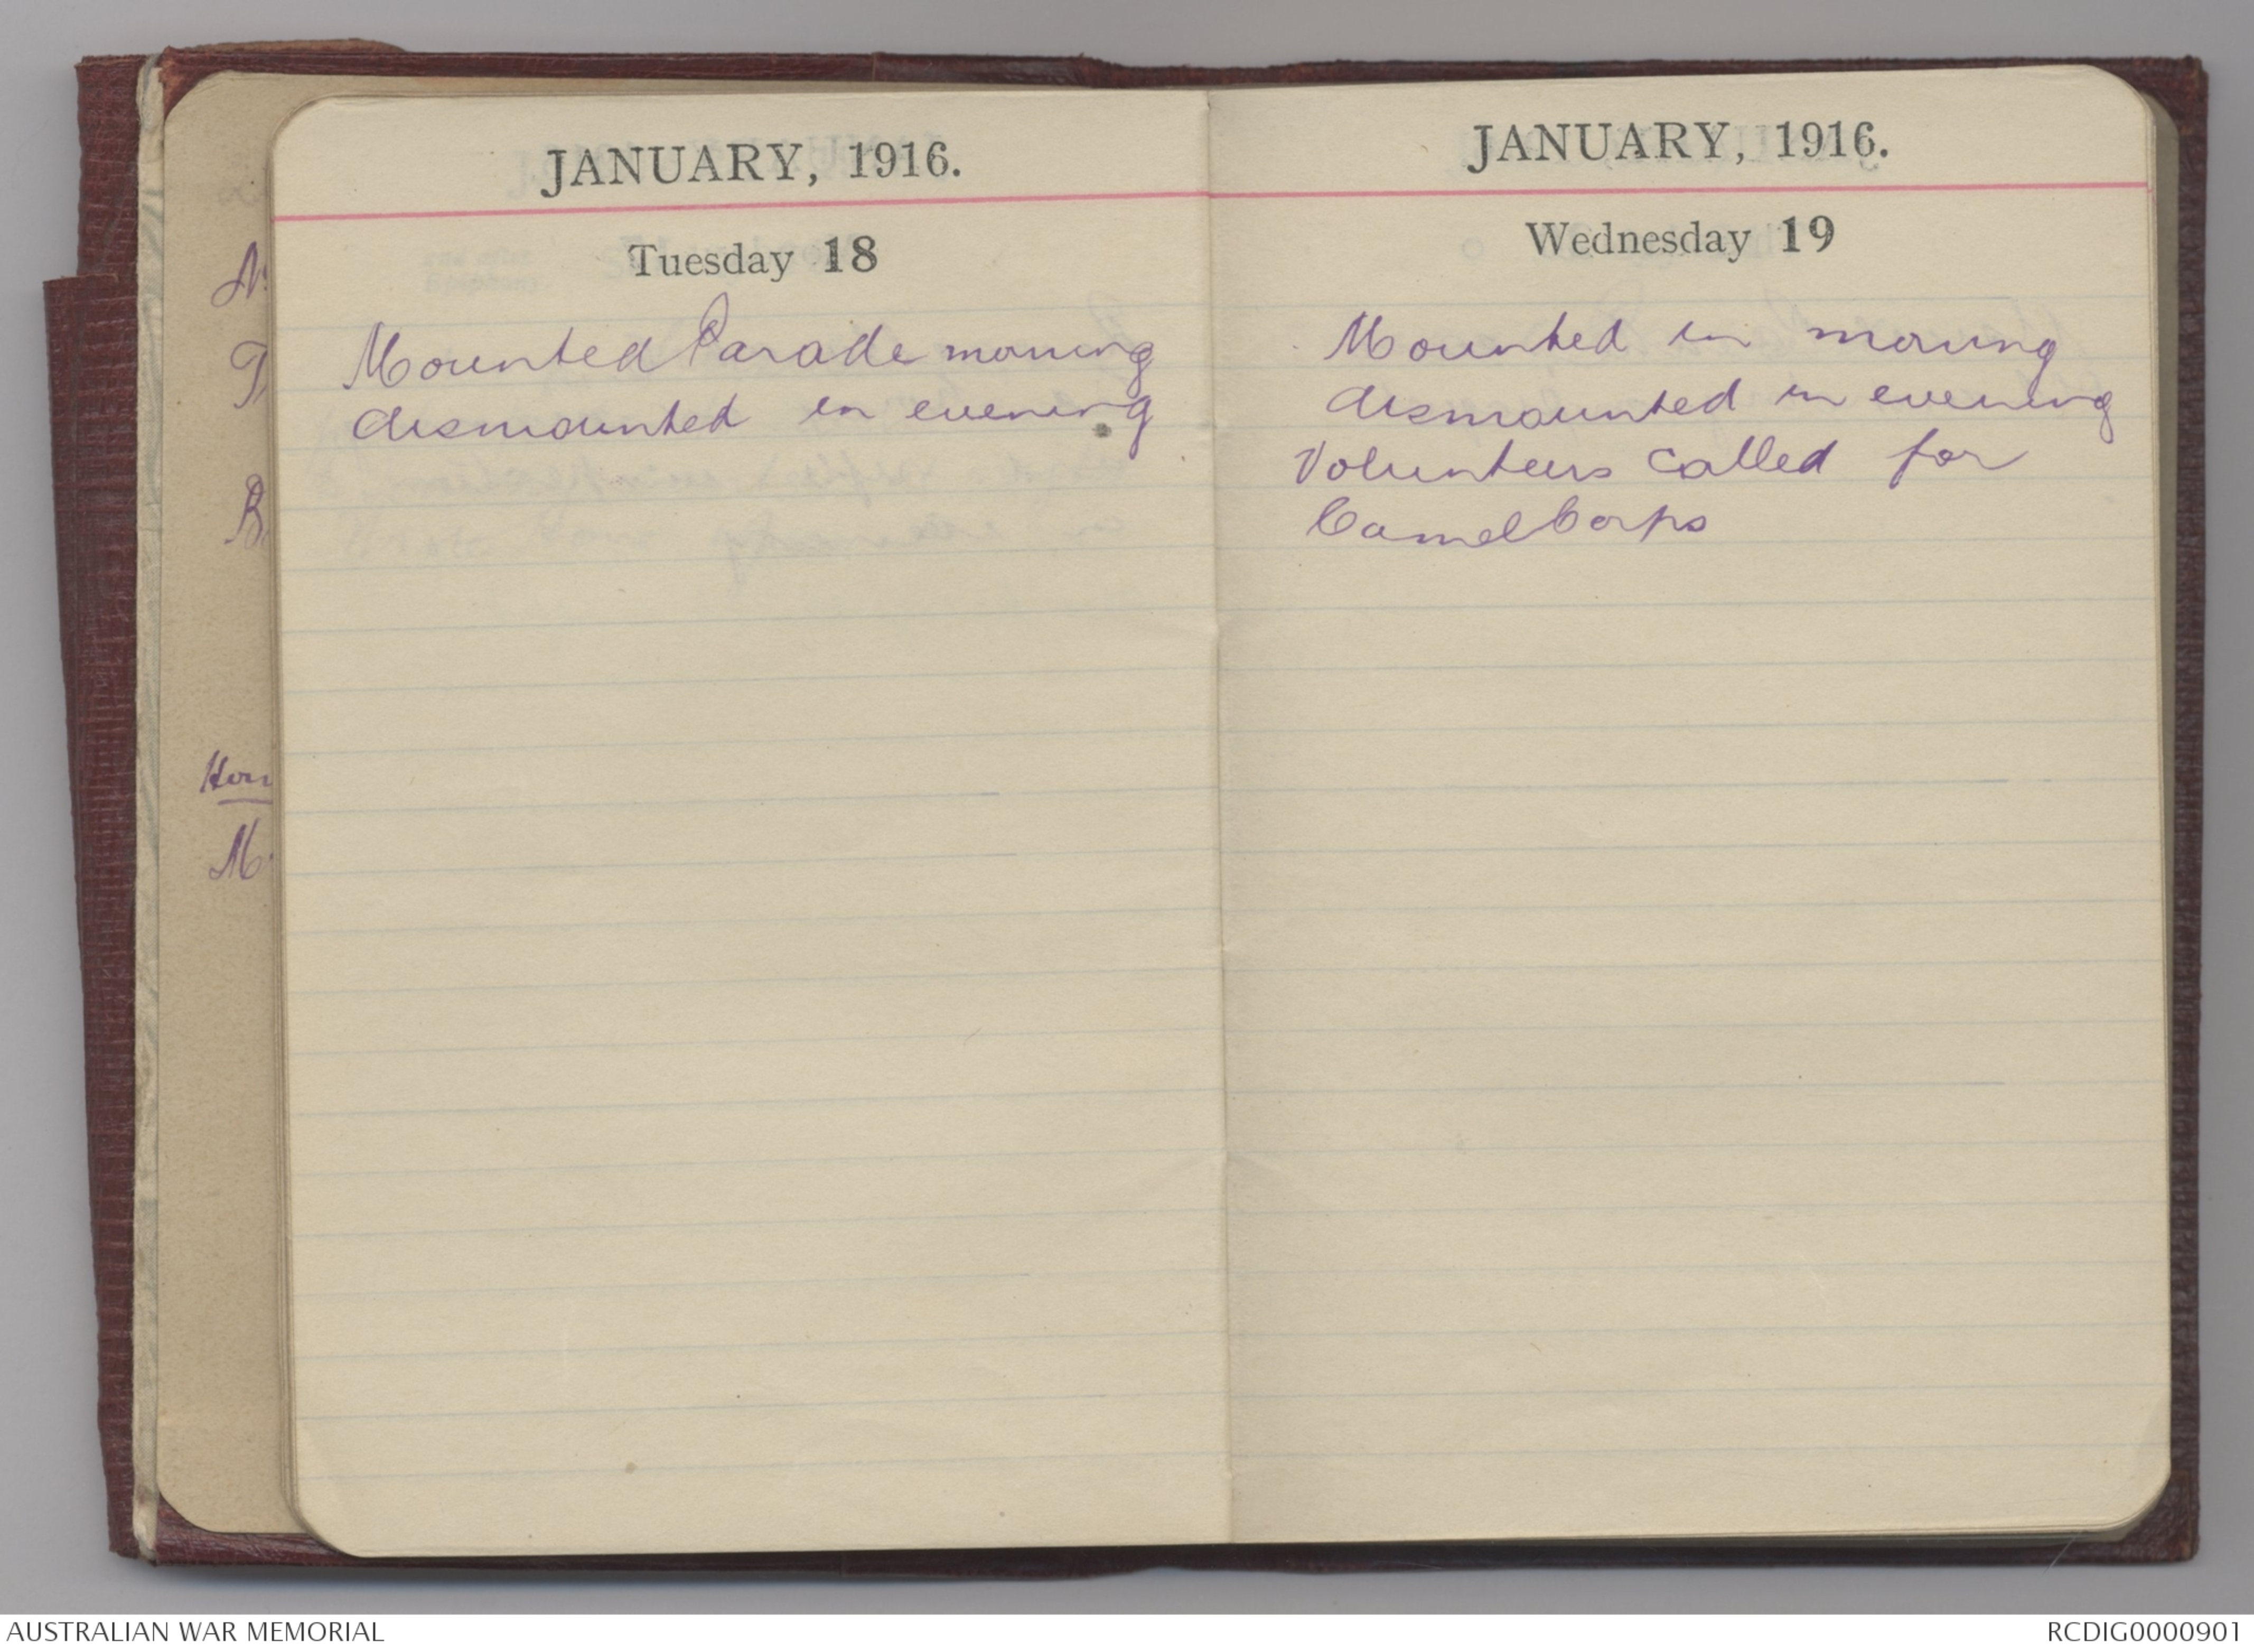 JANUARY, 1916.
Tuesday 18
Mounted Parade morning
dismounted in evening
JANUARY, 1916.
Wednesday 19
Mounted in morning
dismounted in evening
Volunteers called for
Camel Corps
AUSTRALIAN WAR MEMORIAL
RCDIG0000901